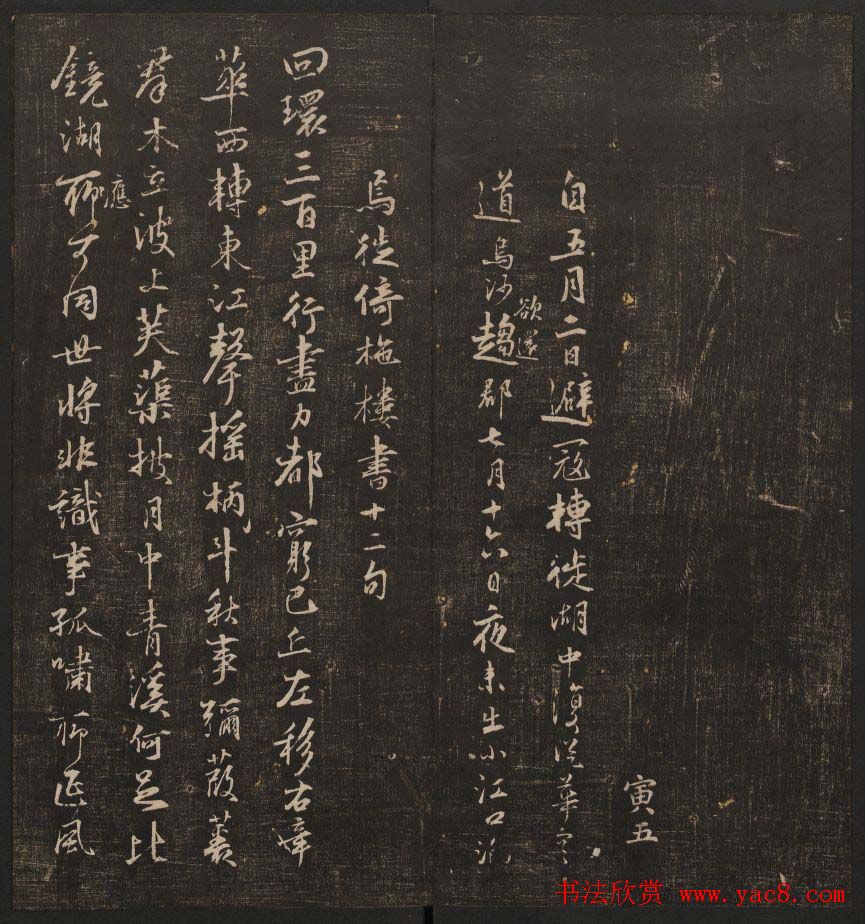 寅五
自五月二日避寇轉徙湖中復從華容
道烏沙趨郡七月十六日夜未出小江口泊
欲還
焉徙倚柂樓書十二句
回環三百里行盡力都窮巴丘左移右章
華西轉東江聲搖柄斗秋事彌葭
羣木立波上芙蕖披月中青溪何足比
鏡湖聊可同世將非識事孤嘯聊延風
應
书法欣赏 www.yac8.com